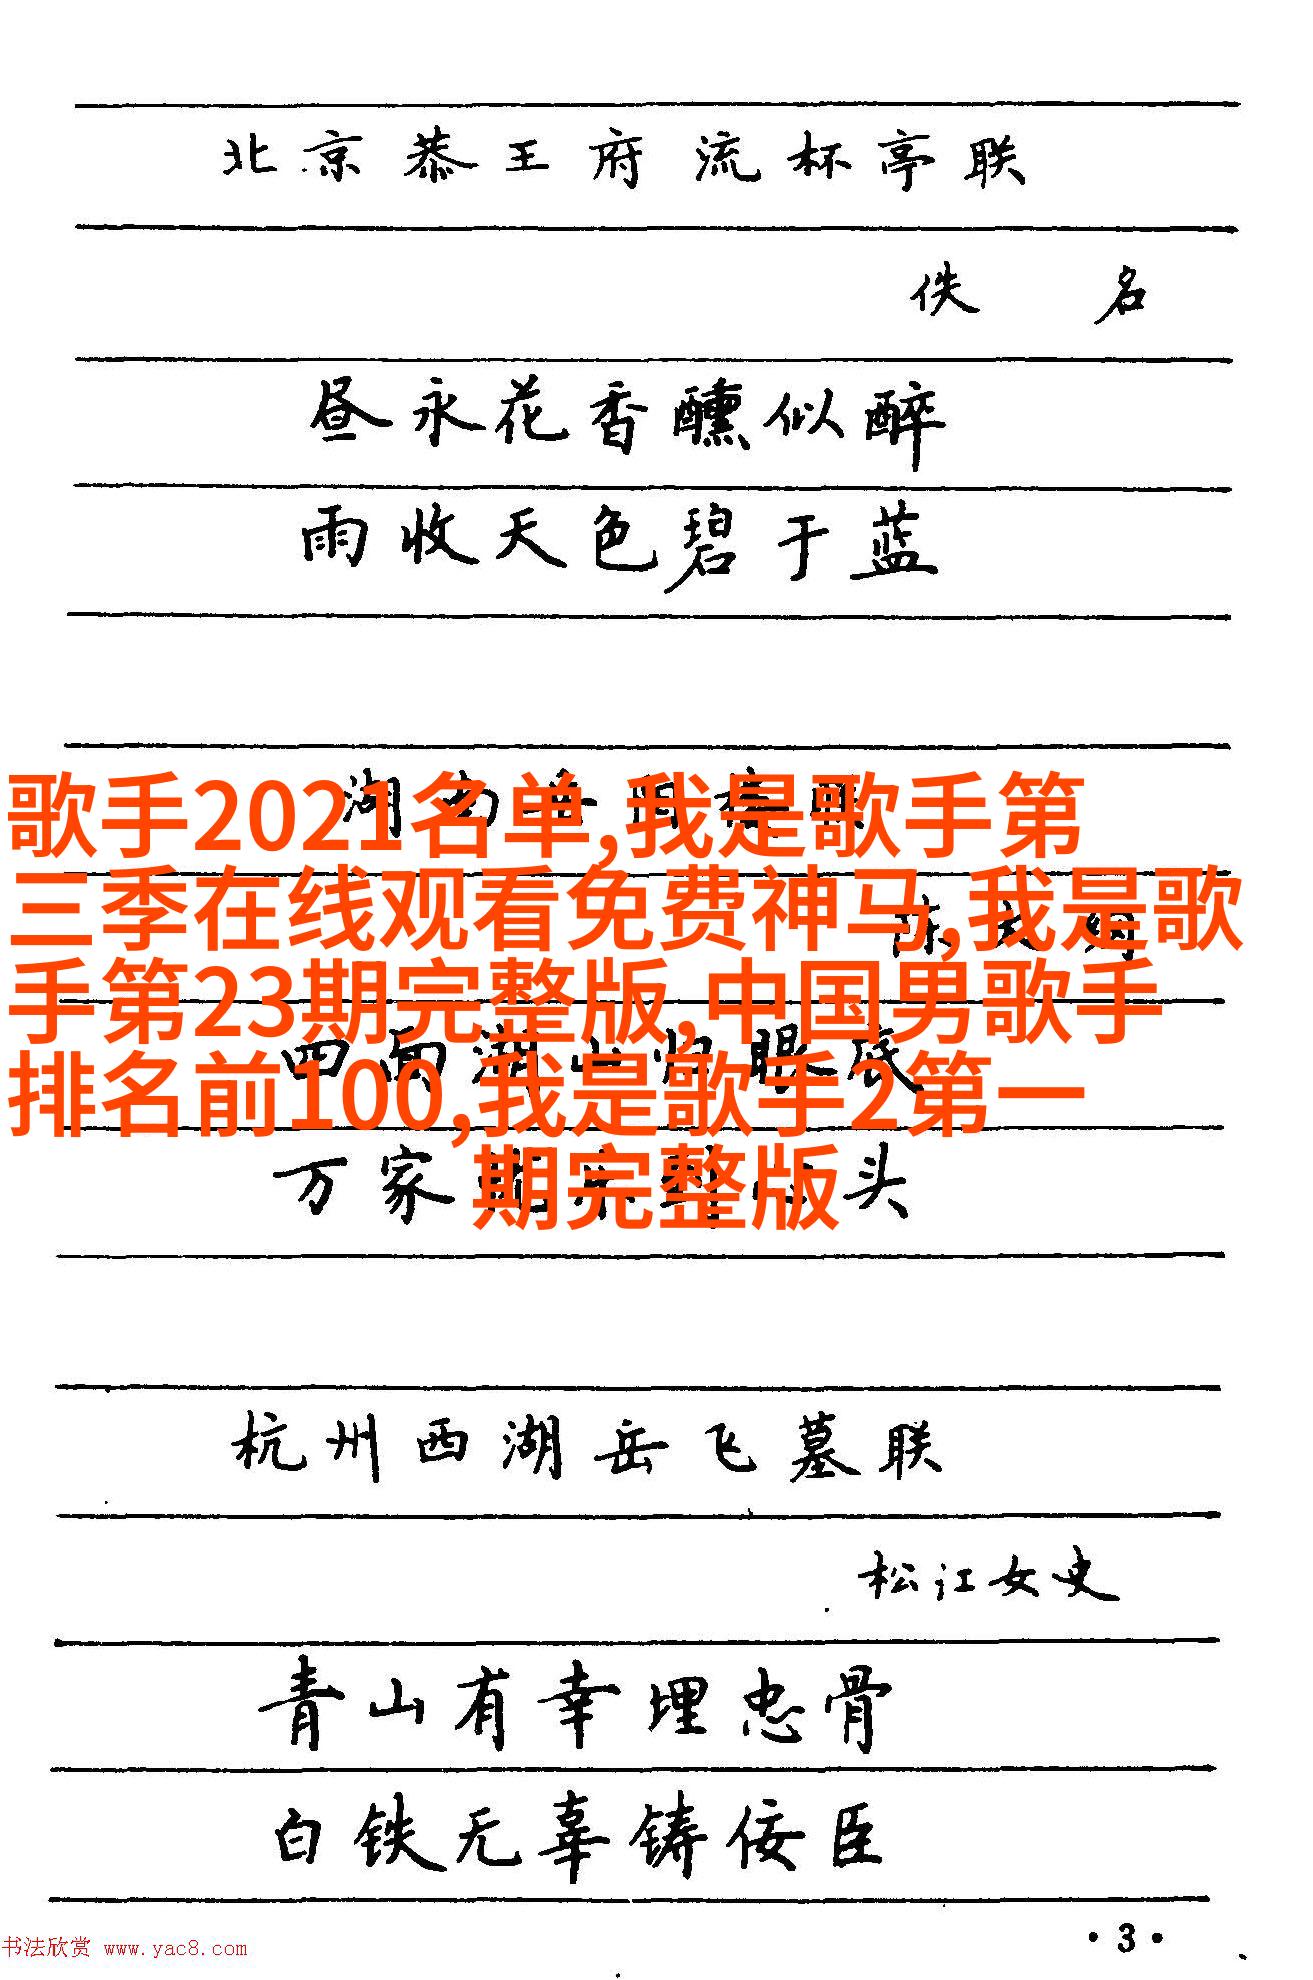 北京恭王府流杯亭联
佚名
昼永花香醺似醉
雨收天色碧于蓝
歌手2021名单,我是歌手第
三季在线观看免费神马,我是歌
手第23期完整版,中国男歌手
排名前100,我是歌手2第一
期完整版
湖
联
陈
四面湖山 眼底
万家 头
杭州西湖岳飞墓联
松江女史
青山有幸埋忠骨
白铁无辜铸佞臣
·3·
书法欣赏 www.yac8.com